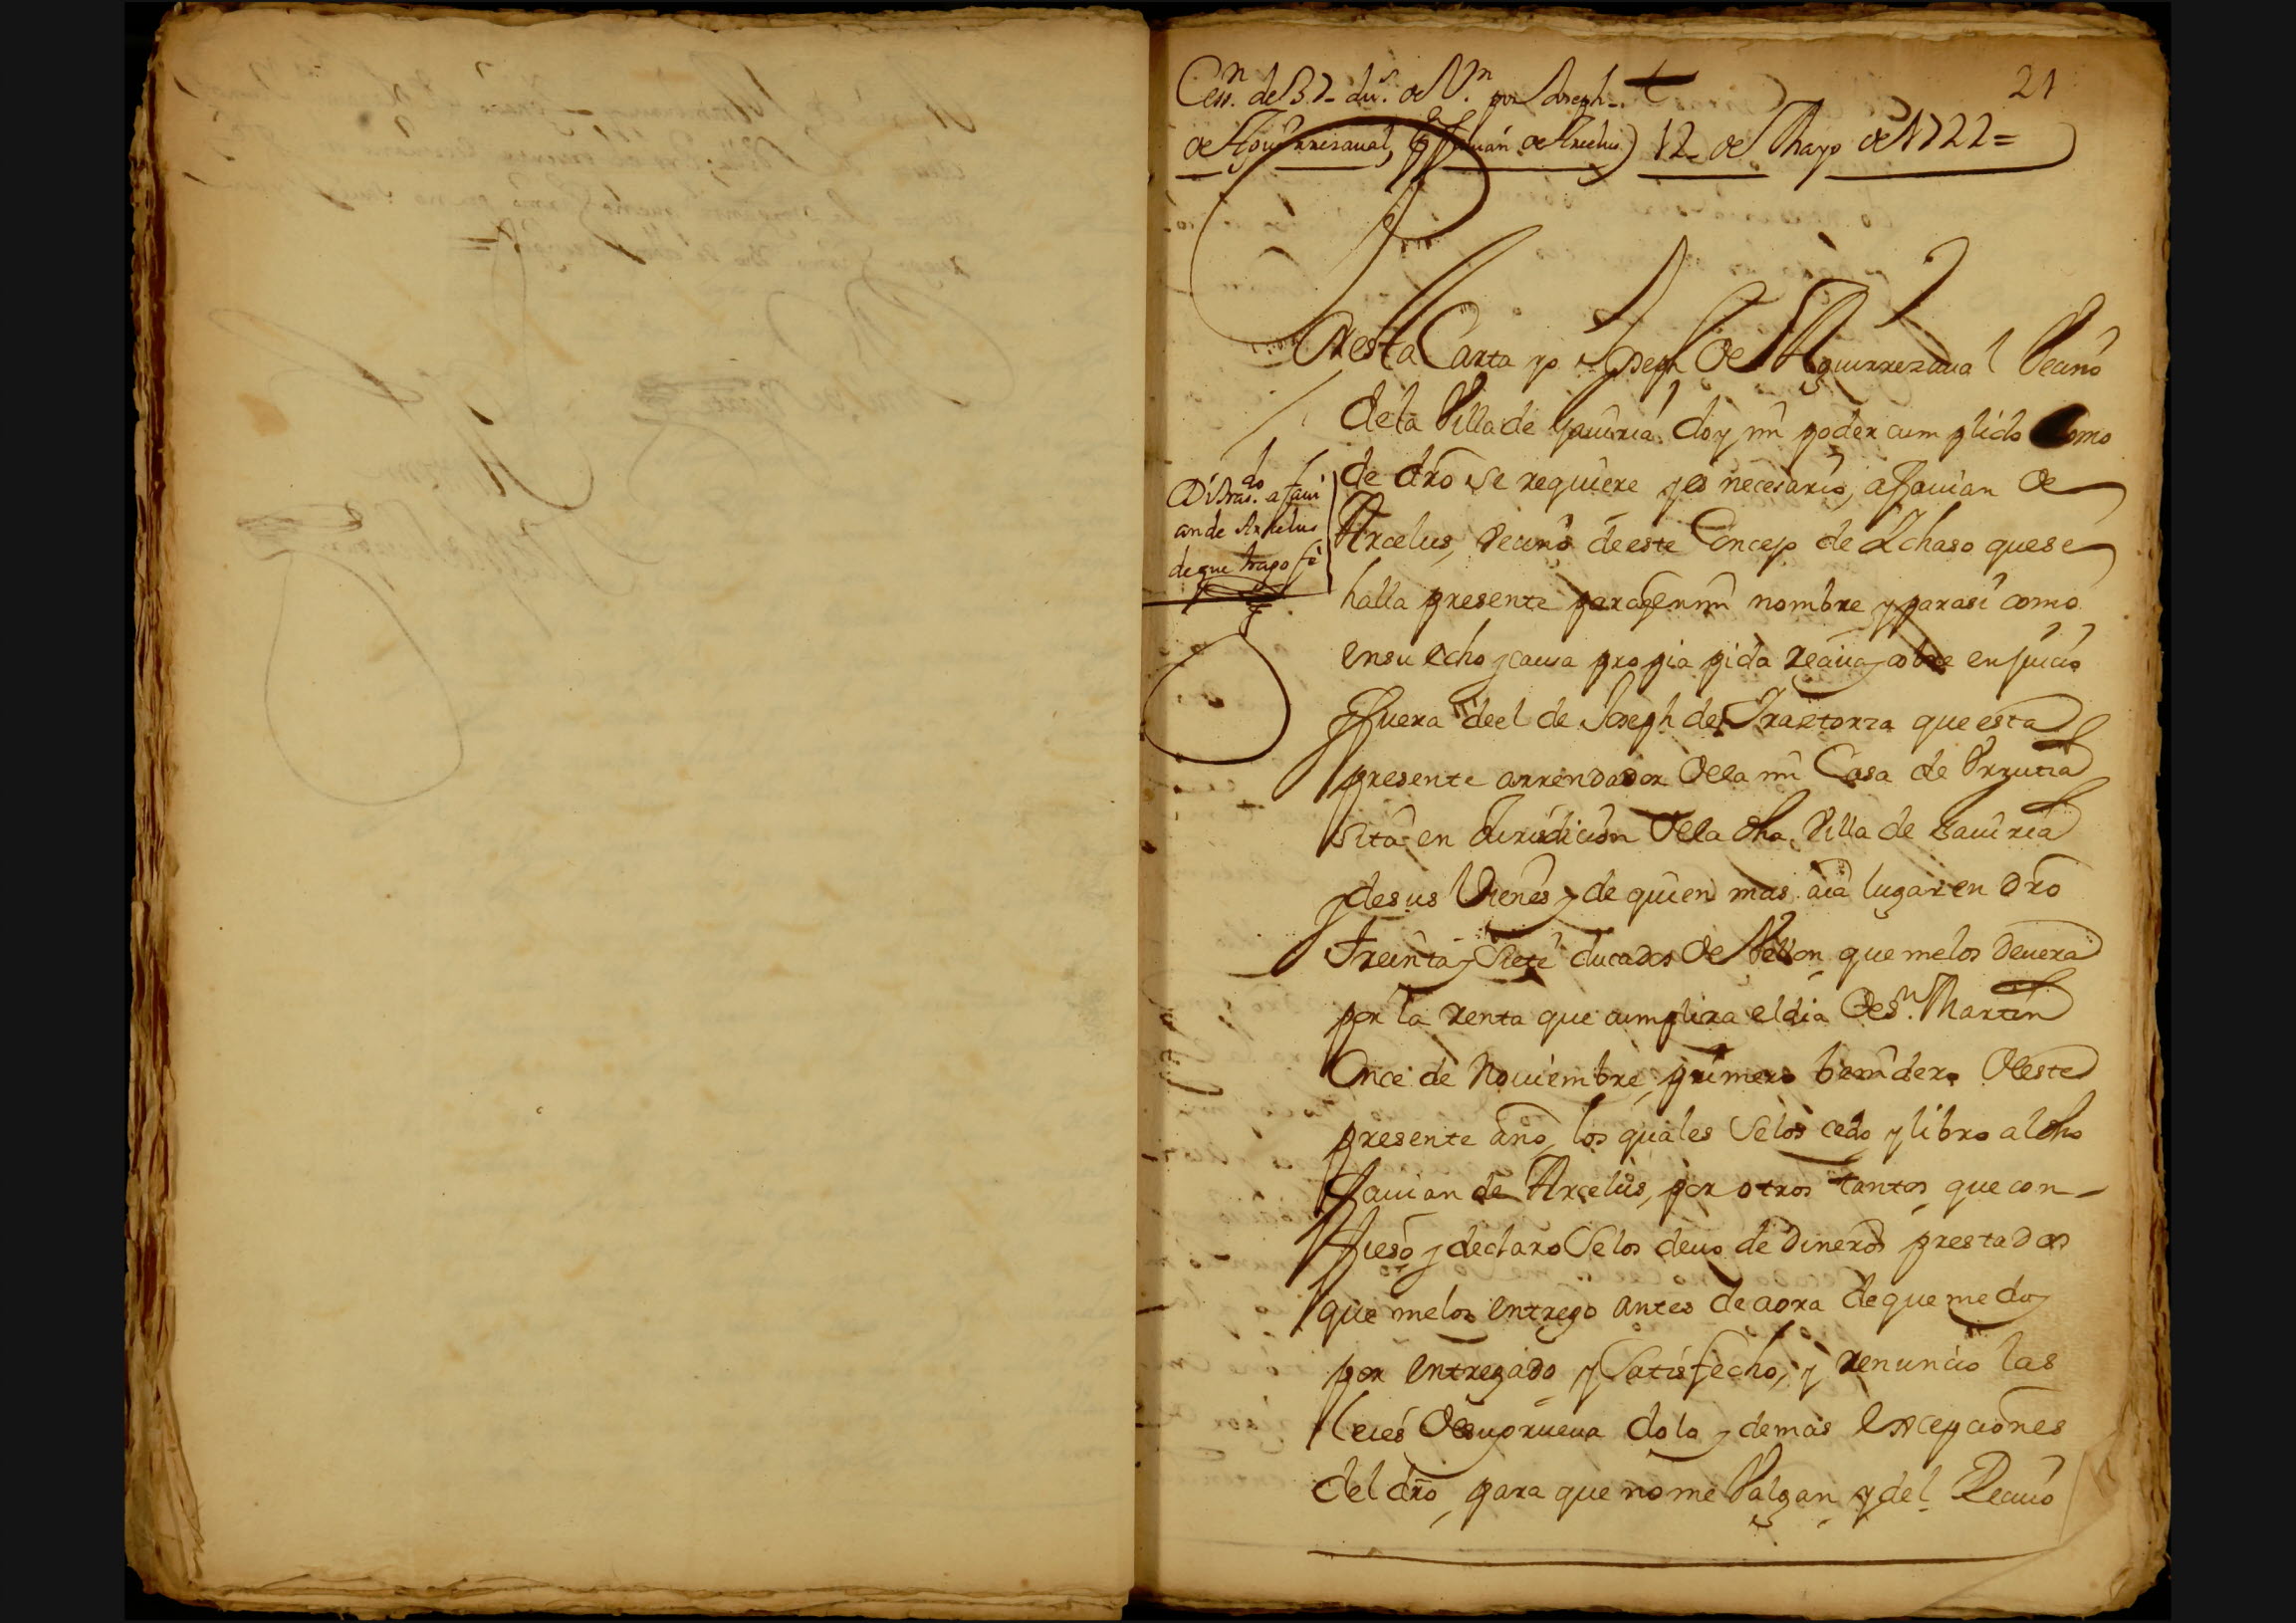 Cesn. de 37 dus. de Vn. por Joseph t 21
de Aguirrezaual, (a Fauian de Arcelus) 12 de Mayo de 1722 =
Por esta Carta yo Joseph de Aguirrezaual Vecino
de la Villa de Gauiria doy mi poder cumplido Como
de dro se requiere y es necesario, a Fauian de
Arcelus, Vecino de este Concejo de Ychaso que se
halla presente para q en mi nombre y para si como
en su echo y causa propia pida reciua y cobre en juicio
y fuera de el de Joseph de Yraetorza que esta
presente arrendador de la mi Casa de Vrrutia
sita en Jurisdicion de la dha Villa de Gauiria
y de sus Vienes y de quien mas aia lugar en dro
Treinta y Siete ducados de Vellon que me los deuera
por la renta que cumplira el dia de Sn. Martin
Once de Nouiembre primero benidero de este
presente año, los quales se los cedo y libro al dho
Fauian de Arcelus, por otros tantos que con-
fieso y declaro se los deuo de dineros prestados
que me los entrego antes de aora de que me doy
por entregado y Satisfecho, y renuncio las
leies de su prueua dolo y demas excepciones
del dro para que no me Valgan y del Reciuo
Di trasdo. a Faui
an de Arcelus
de que hago fe